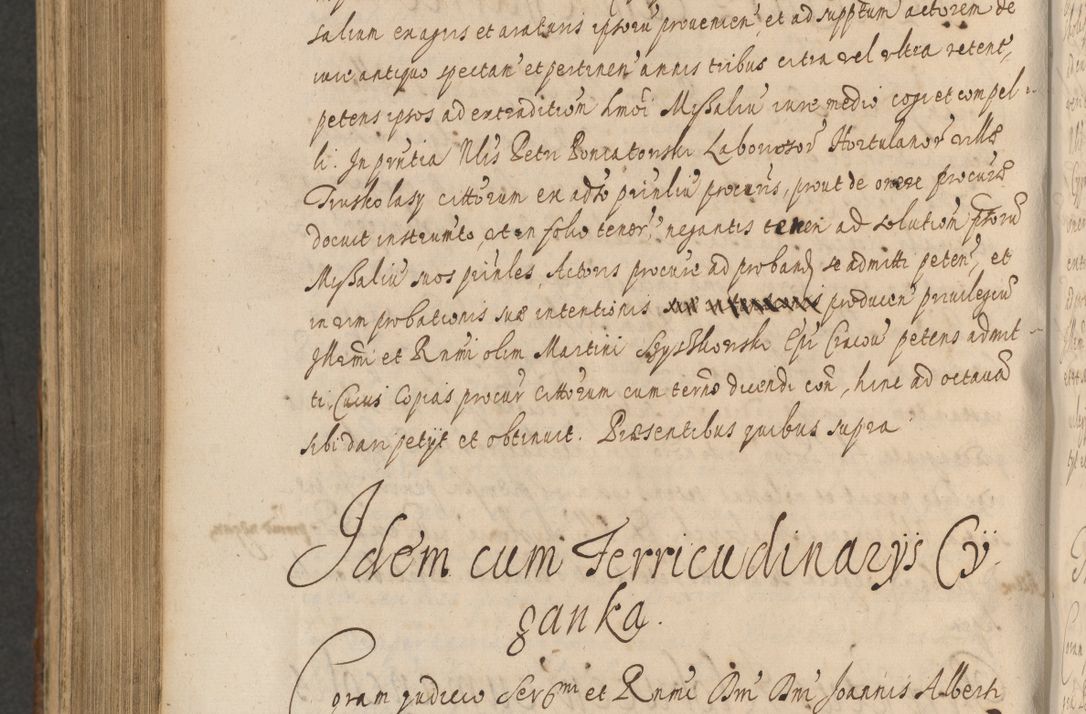 salium ex agris et araturis ipsorū provenien̄, et ad supptum actorem de
iure antiquo spectan̄ et pertinen̄ annis tribus citra vel ultra retent,
petens ipsos ad extradition̄ hmōi Missaliū iure medio cogi et compel-
li. In pn̄tia Nlis Petri Poniatowski Laboriosor̄ Hortulanor̄ villæ
Truskolasy cittōrum ex adso prin̄liū procuris, prout de onere procuris
docuit instrumto, et in folio tenor̄, negantis teneri ad solution̄ ipsorū
Missaliū suos prin̄les, Actoris procur̄ ad proband se admitti peten̄, et
in vim probationis suæ intentionis producen̄ privilegiū
Illrmi et Rn̄mi olim Martini Szyszkowski Epī Cracov̄ petens admit-
ti, Cuius Copias procur̄ cittōrum cum termō dicendi con̄, hinc ad octavā
sibi dari petijt et obtinuit. Præsentibus quibus supra
Idem cum Terricudinarijs Cÿ-
ganka.
Coram judicio Sermi et Rn̄mi Dn̄i Dn̄i Joannis Alberti